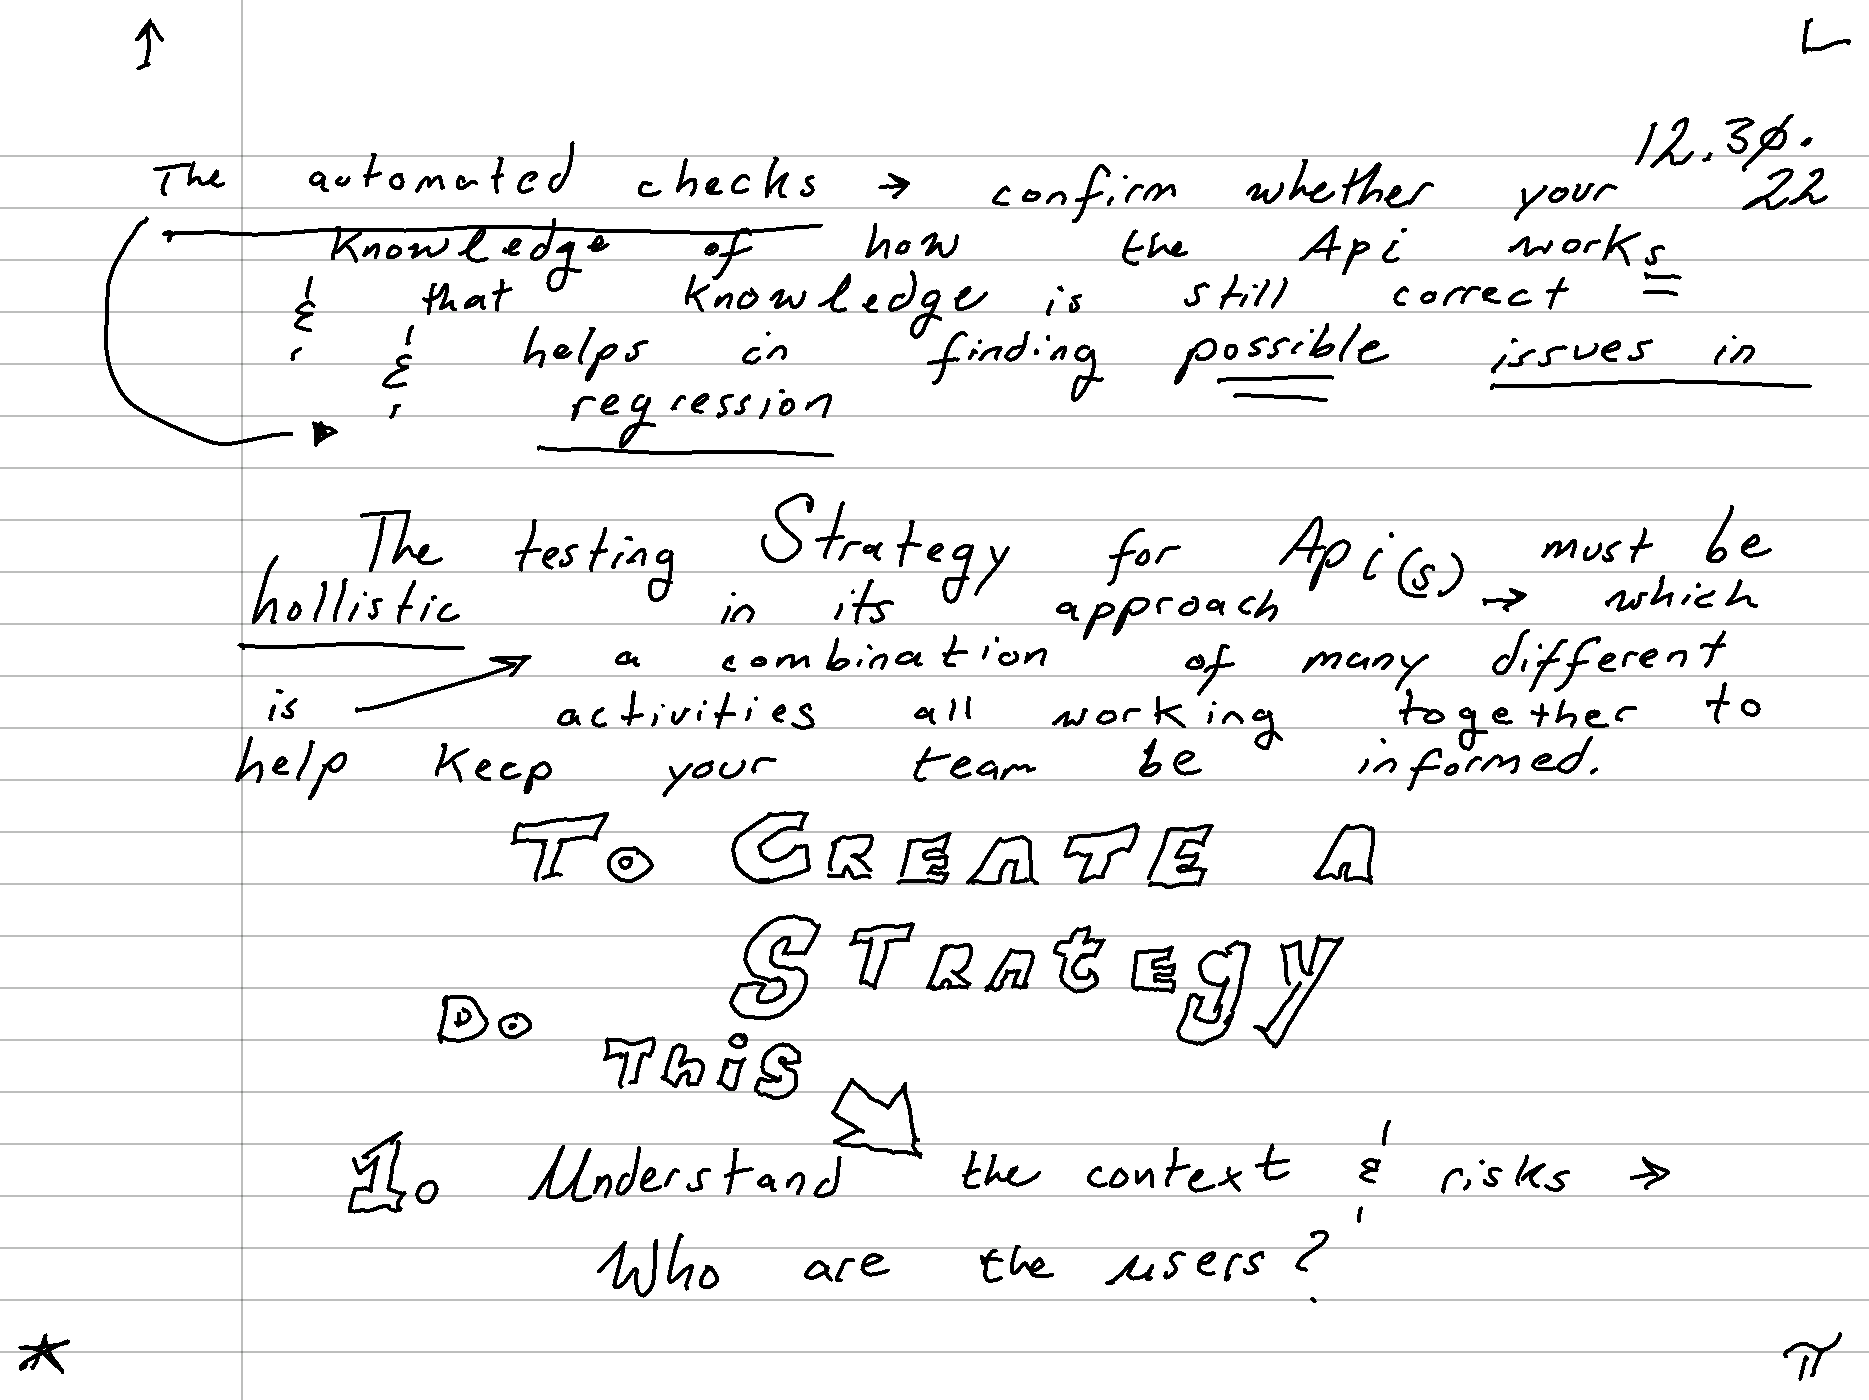 ↑
12.30.
22
The automated checks → confirm whether your
knowledge of how the Api works
& that knowledge is still correct
& helps in finding possible issues in
regression
The testing Strategy for Api(s) must be
hollistic in its approach → which
is → a combination of many different
activities all working together to
help keep your team be informed.
To CREATE A
STRATEgy
Do
This
1. Understand the context & risks →
Who are the users?
π